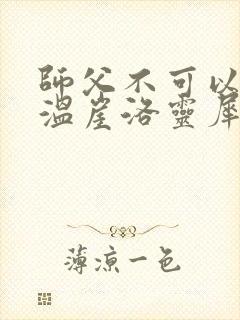 師父不可以
溫崖洛靈犀
薄涼一色